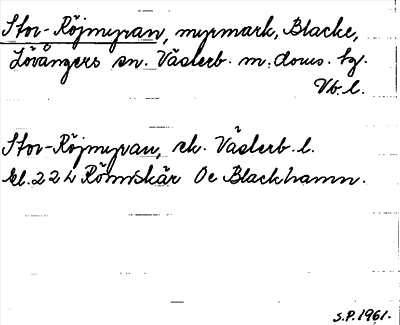 Stor-Röjmyran, myrmark, Blacke,
Lövångers sn. Västerb. m. doms. hg.
Vb. l.
Stor-Röjmyran, rk. Västerb. l.
bl. 22 L Rönnskär Oe Blackhamn.
S.P. 1961.